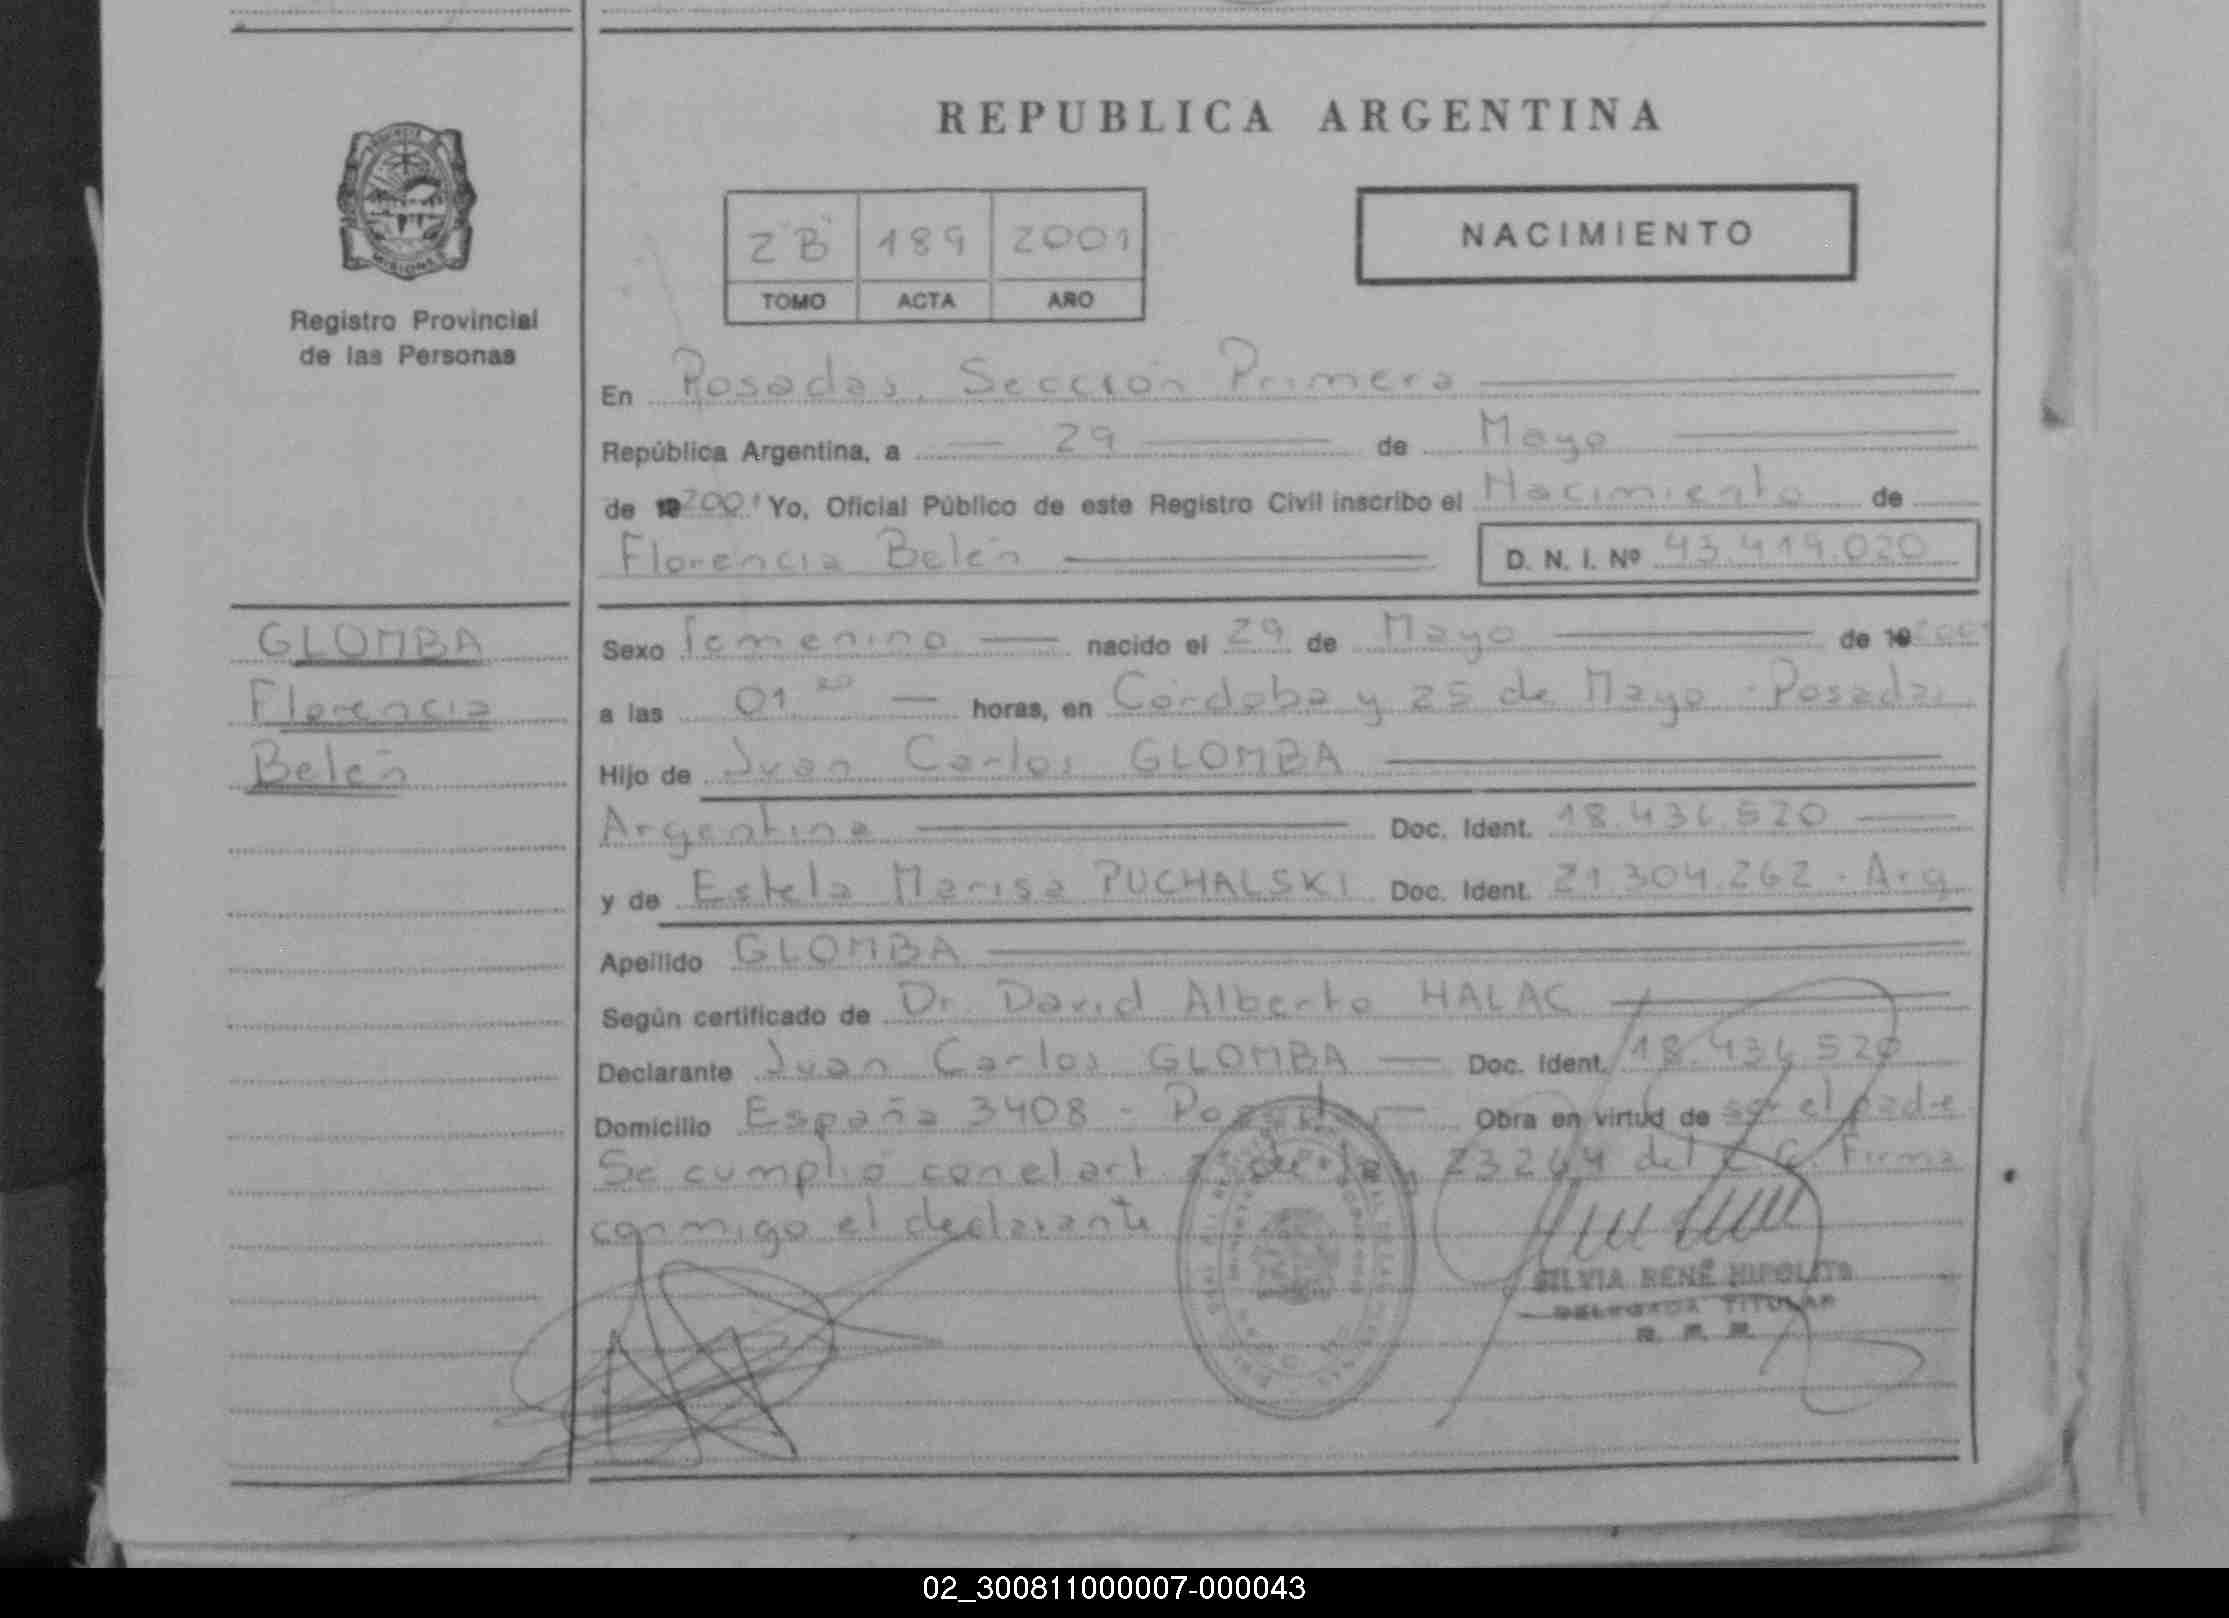 REPUBLICA ARGENTINA
NACIMIENTO
2 "B" 189 2001
TOMO ACTA AÑO
Registro Provincial
de las Personas
En Posadas, Sección Primera
República Argentina, a 29 de Mayo
de 2001 Yo, Oficial Público de este Registro Civil inscribo el Nacimiento de
Florencia Belén D. N. I. Nº 43.419.020
GLOMBA
Florencia
Belén
Sexo Femenino nacido el 29 de Mayo de 2001
a las 01 20 horas, en Córdoba y 25 de Mayo - Posadas
Hijo de Juan Carlos GLOMBA
Argentina Doc. Ident. 18.436.520
y de Estela Marisa PUCHALSKI Doc. Ident. 21.304.262 - Arg
Apellido GLOMBA
Según certificado de Dr. David Alberto HALAC
Declarante Juan Carlos GLOMBA Doc. Ident. 18.436.520
Domicilio España 3408 - Posadas Obra en virtud de ser el padre
Se cumplió con el art de ley 23264 del C.C. Firma
conmigo el declarante
SILVIA RENÉ HIPOLITO
DELEGADA TITULAR
02_300811000007-000043